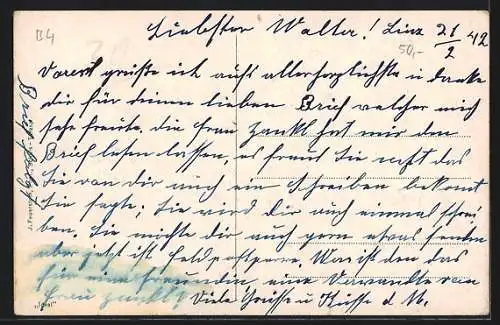 B4
Liebster Walter! Linz 21/2 42
50,-
Vorerst grüße ich aufs allerherzlichste u danke
dir für deinen lieben Brief welcher mich
sehr freute. die Frau Zankl hat mir den
Brief lesen lassen, es freud Sie recht das
Sie von dir auch ein schreiben bekomt
Sie sagte, Sie wird dir auch einmal schrei
ben. Sie möchte dir auch gern etwas senden
aber jetzt ist Feldpostsperre. Was ist den das
für eine Freundin, eine Verwandte von
Frau Zankl? Viele Grüsse u Küsse d M.